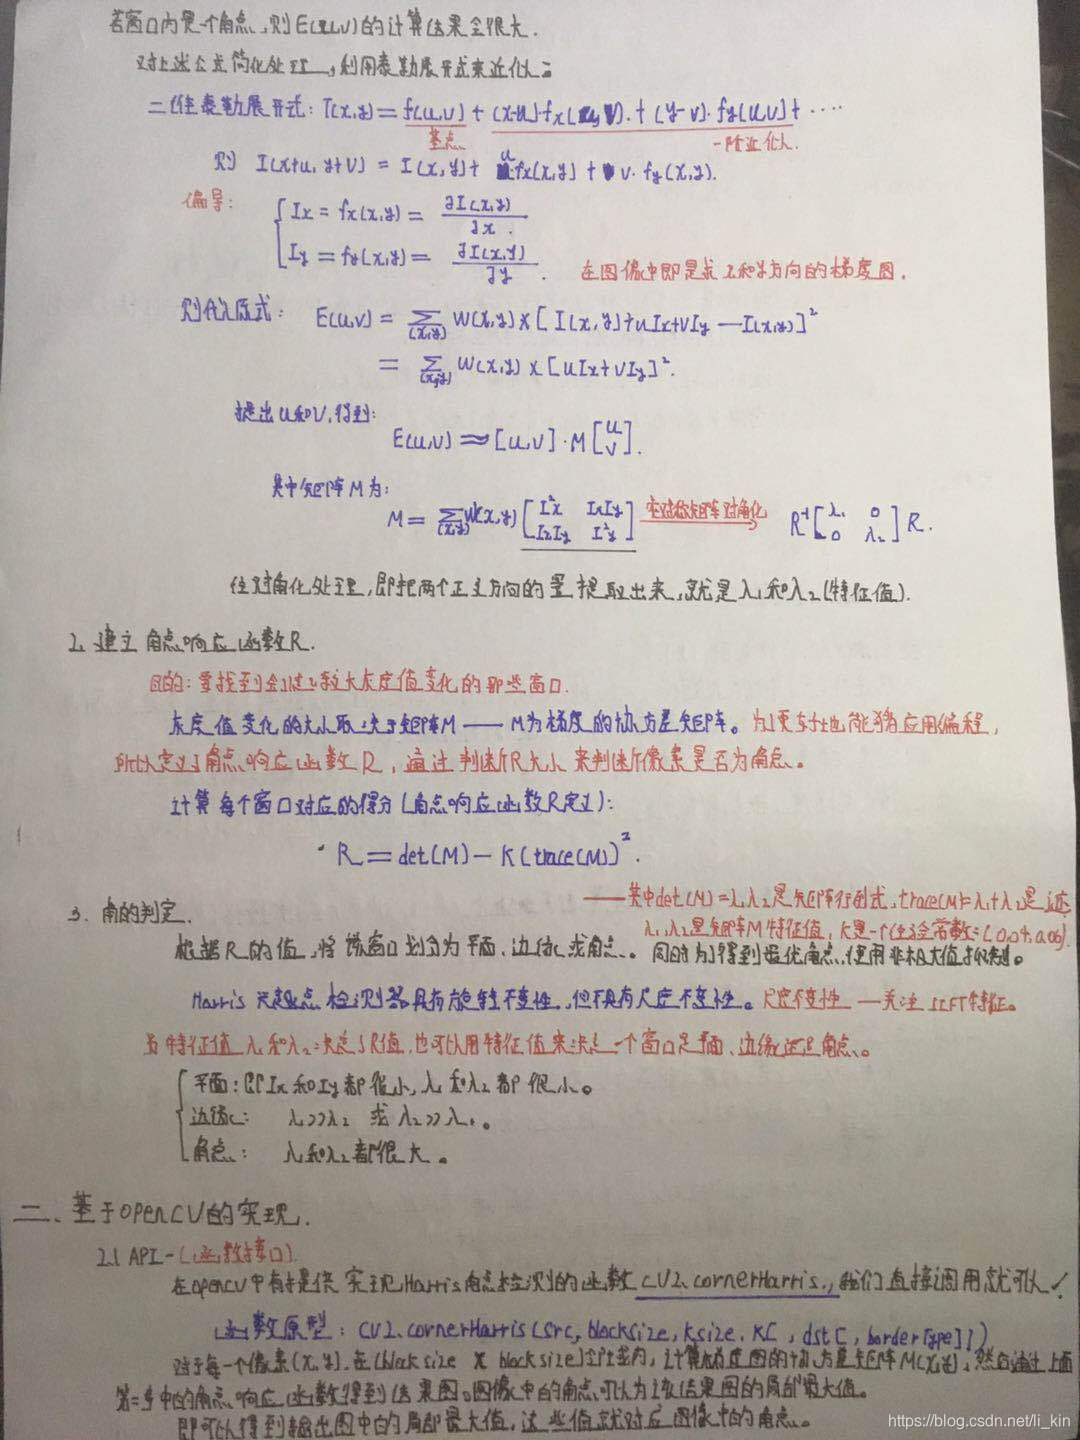 若窗口内是一个角点，则E(u,v)的计算结果会很大.
对上述公式简化处理，利用泰勒展开式来近似：
二维泰勒展开式：T(x,y) = f(u,v) + (x-u)·fx(u,v). + (y-v)·fy(u,v) + ····
基点 一阶近似.
则 I(x+u, y+v) = I(x,y) + u fx(x,y) + v·fy(x,y).
偏导：
Ix = fx(x,y) = ∂I(x,y)/∂x.
Iy = fy(x,y) = ∂I(x,y)/∂y. 在图像中即是求x和y方向的梯度图.
则代入原式：E(u,v) = ∑(x,y) W(x,y) × [I(x,y)+uIx+vIy-I(x,y)]²
= ∑(x,y) W(x,y) × [uIx+vIy]².
提出u和v,得到：
E(u,v) ≈ [u,v]·M [u v].
其中矩阵M为：
M = ∑(x,y) W(x,y) [I²x IxIy IxIy I²y] 实对称矩阵对角化 R⁻¹ [λ₁ 0 0 λ₂] R.
经对角化处理,即把两个正交方向的量提取出来,就是λ₁和λ₂(特征值).
2. 建立角点响应函数R.
目的：寻找到会让较大灰度值变化的那些窗口.
灰度值变化的大小取决于矩阵M —— M为梯度的协方差矩阵。为了更好地能够应用编程,
所以定义了角点响应函数R，通过判断R大小来判断像素是否为角点。
计算每个窗口对应的得分(角点响应函数R定义)：
R = det(M) - K(trace(M))².
——其中det(M)=λ₁λ₂是矩阵行列式,trace(M)=λ₁+λ₂是迹
3. 角的判定.
λ₁,λ₂是矩阵M特征值, K是一个经验常数=(0.04,0.06).
根据R的值,将该窗口划分为平面、边缘或角点。同时为了得到最优角点,使用非极大值抑制。
Harris 检测器具有旋转不变性,但不具有尺度不变性。尺度不变性 —关注SIFT特征。
特征值λ₁和λ₂决定了R值,也可以用特征值来决定一个窗口是平面、边缘还是角点。
平面：即Ix和Iy都很小,λ₁和λ₂都很小。
边缘： λ₁>>λ₂ 或 λ₂>>λ₁。
角点： λ₁和λ₂都很大。
二、基于OpenCV的实现.
2.1 API-(函数接口)
在OpenCV中有提供实现Harris角点检测的函数 CV2.cornerHarris,我们直接调用就可以✓
函数原型：CV2.cornerHarris(src, blocksize, ksize, K[, dst[, borderType]])
对于每一个像素(x,y),在(blocksize × blocksize)邻域内,计算梯度图的协方差矩阵M(x,y),然后通过上面
第二步中的角点响应函数得到结果图。图像中的角点可以为该结果图的局部最大值。
即可以得到输出图中的局部最大值,这些值就对应图像中的角点。
https://blog.csdn.net/li_kin